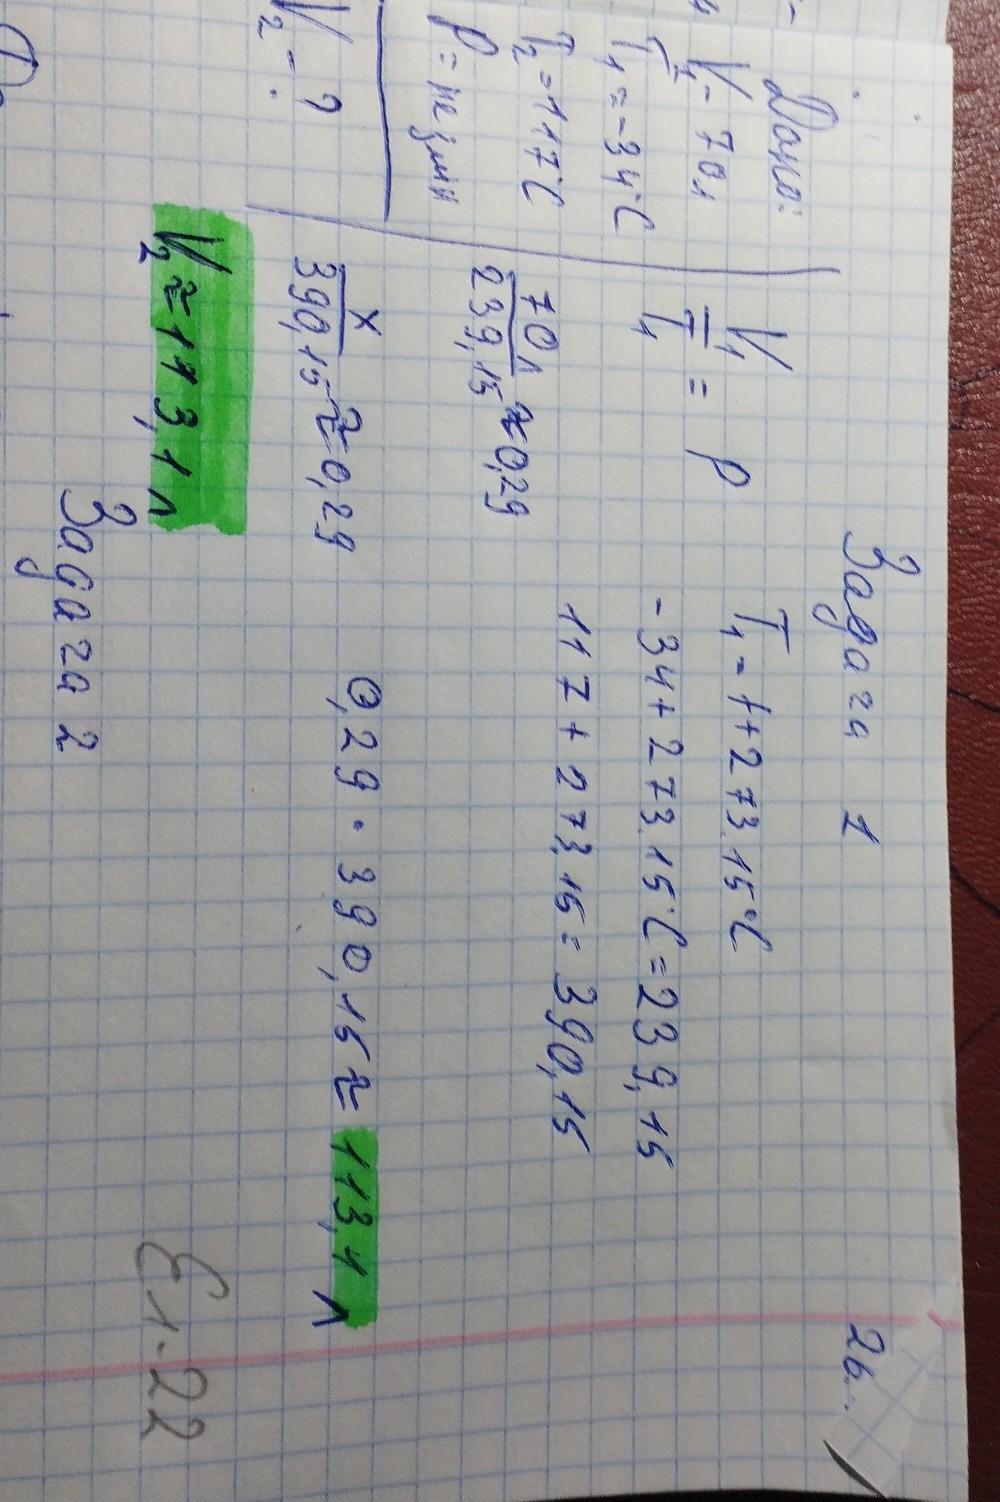 Задача 1
2б.
Дано:
V₁ - 70л
T₁ = -34°C
T₂ = 117°C
P = не змін
V₂ - ?
V₁/T₁ = P
T₁ - t + 273.15°C
-34 + 273.15°C = 239,15
117 + 273,15 = 390,15
70л/239,15 ≈ 0,29
x/390,15 ≈ 0,29
0,29 · 390,15 ≈ 113,1 л
V₂ ≈ 113,1 л
Є1-22
Задача 2